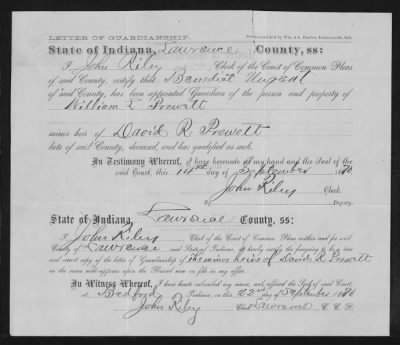 LETTER OF GUARDIANSHIP.
State of Indiana, Lawrance County, ss:
I, John Riley Clerk of the Court of Common Pleas
of said County, certify that Benedict Nugent
of said County, has been appointed Guardian of the person and property of
William T Prewett
minor heir of David R Prewett
late of said County, deceased, and has qualified as such.
In Testimony Whereof, I have hereunto set my hand and the Seal of the
said Court, this 14th day of September 1870.
John Riley Clerk.
By Deputy.
State of Indiana, Lawrance County, ss:
I John Riley Clerk of the Court of Common Pleas within and for said
County of Lawrance and State of Indiana, do hereby certify the foregoing to be a true
and exact copy of the letter of Guardianship of the minor heirs of David R Prewett
as the same now appears upon the Record now on file in my office.
In Witness Whereof, I have hereunto subscribed my name, and affixed the Seal of said Court,
at Bedford Indiana, on this 22nd day of September 1870
John Riley Clerk Lawrance C. C. P.